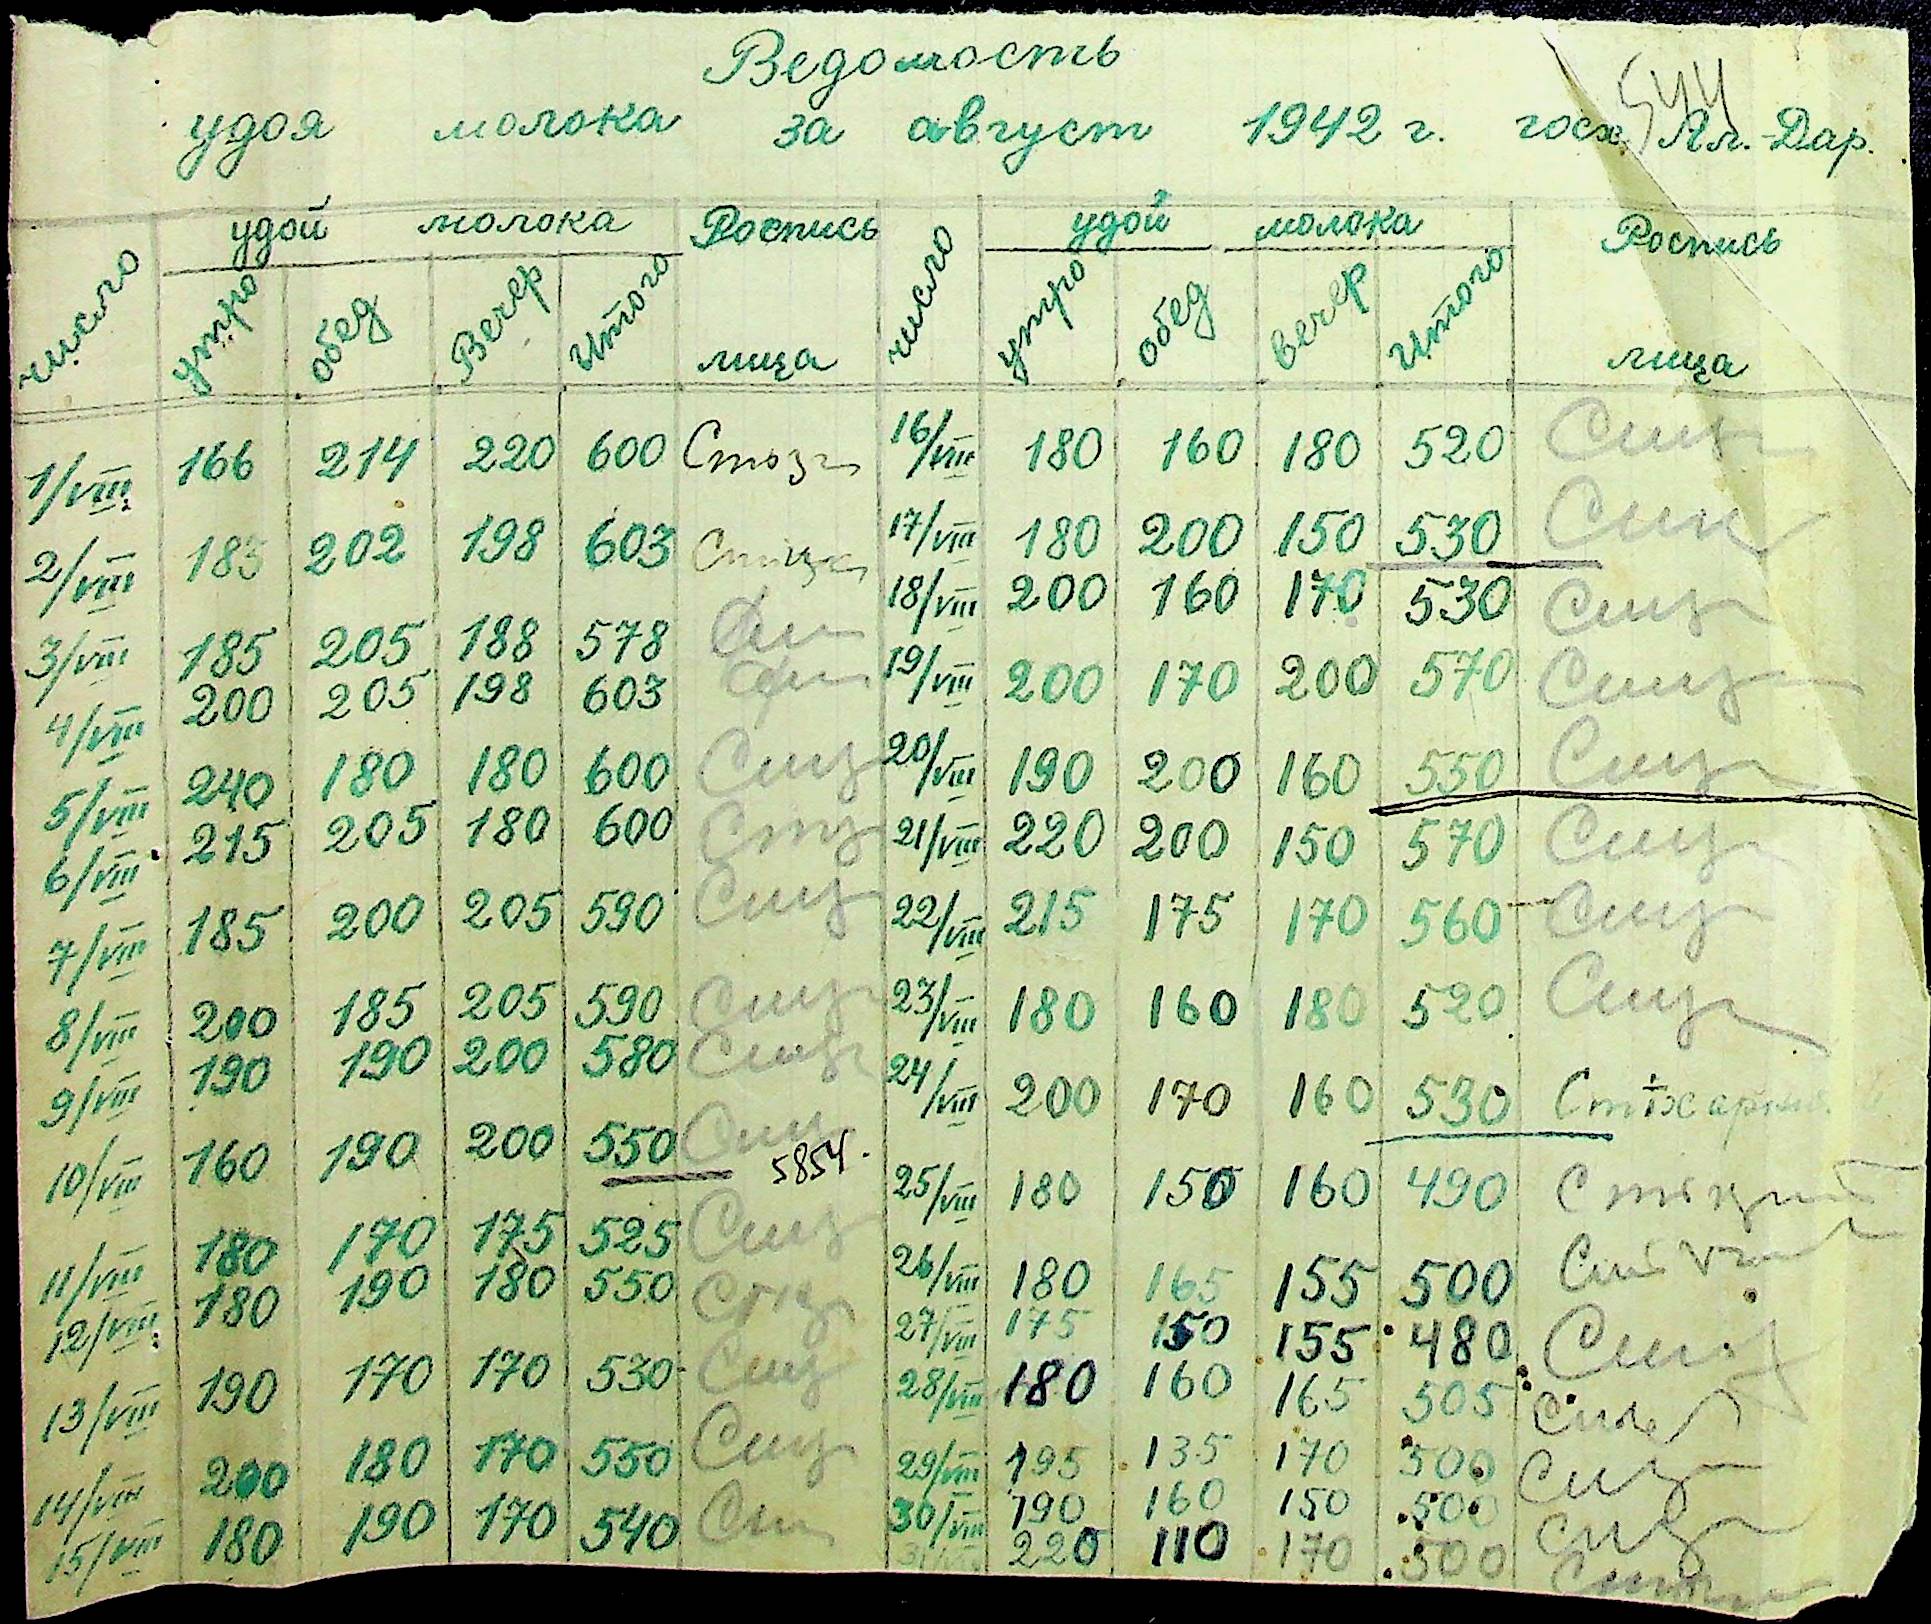 Ведомость
544
удоя молока за август 1942 г. госх. Ал.-Дар.
число удой молока Роспись лица число удой молока Роспись лица
утро обед Вечер Итого утро обед вечер Итого
1/VIII 166 214 220 600 16/VIII 180 160 180 520
2/VIII 183 202 198 603 17/VIII 180 200 150 530
3/VIII 185 205 188 578 18/VIII 200 160 170 530
4/VIII 200 205 198 603 19/VIII 200 170 200 570
5/VIII 240 180 180 600 20/VIII 190 200 160 550
6/VIII 215 205 180 600 21/VIII 220 200 150 570
7/VIII 185 200 205 590 22/VIII 215 175 170 560
8/VIII 200 185 205 590 23/VIII 180 160 180 520
9/VIII 190 190 200 580 24/VIII 200 170 160 530
10/VIII 160 190 200 550 5854. 25/VIII 180 150 160 490
11/VIII 180 170 175 525 26/VIII 180 165 155 500
12/VIII 180 190 180 550 27/VIII 175 150 155 480
13/VIII 190 170 170 530 28/VIII 180 160 165 505
14/VIII 200 180 170 550 29/VIII 195 135 170 500
15/VIII 180 190 170 540 30/VIII 190 160 150 500
31/VIII 220 110 170 500